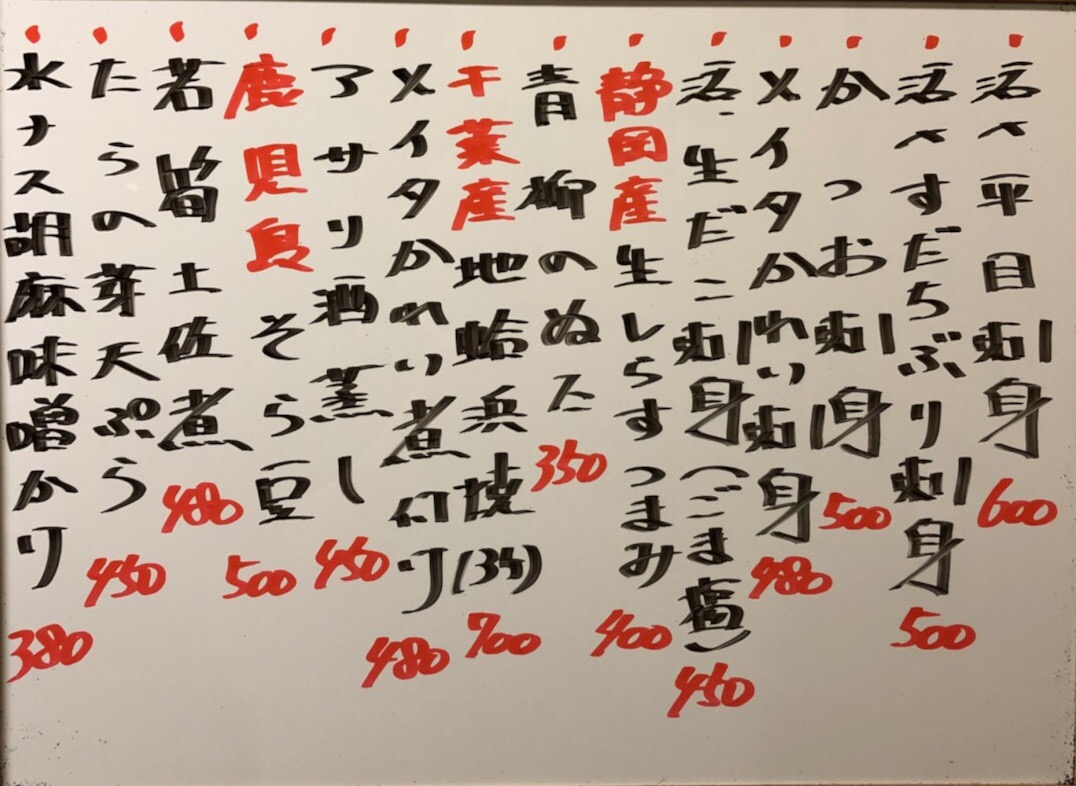 活〆平目刺身 600
活〆すだちぶり刺身 500
かつお刺身 500
メイタかれい刺身 480
活生だこ刺身(ごま) 450
静岡産生しらすつまみ 400
青柳のぬた 350
千葉産地蛤浜焼(3ケ) 700
メイタかれい煮付け 480
アサリ酒蒸し 450
鹿児島そら豆 500
若筍土佐煮 480
たらの芽天ぷら 450
水ナス胡麻味噌かけ 380